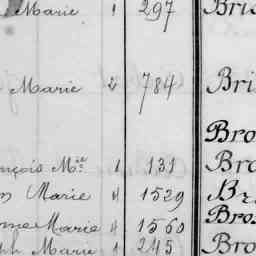 Marie 1 297 Bri
Marie 2 784 Bri
Bro
nçois Mie 1 131 Bro
n Marie 4 1529 Br
nne Marie 4 1560 Bros
hn Marie 1 245 Bro